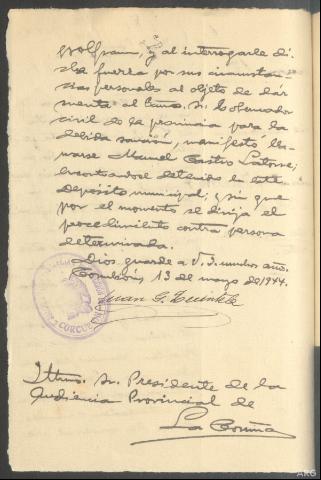 wolfram, y al interrogarle di-
cha fuerza por sus circunstan-
cias personales al objeto de dar
cuenta al Excmo. Sr. Gobernador
civil de la provincia para la
debida sanción, manifestó lla-
marse Manuel Castro Latorre;
encontrándose detenido en este
depósito municipal; y sin que
por el momento se dirija el
procedimiento contra persona
determinada.
Dios guarde a V.I. muchos años.
13 de mayo de 1944.
Juan G.
CORCU
Iltmo. Sr. Presidente de la
Audiencia Provincial de
La Coruña
ARG